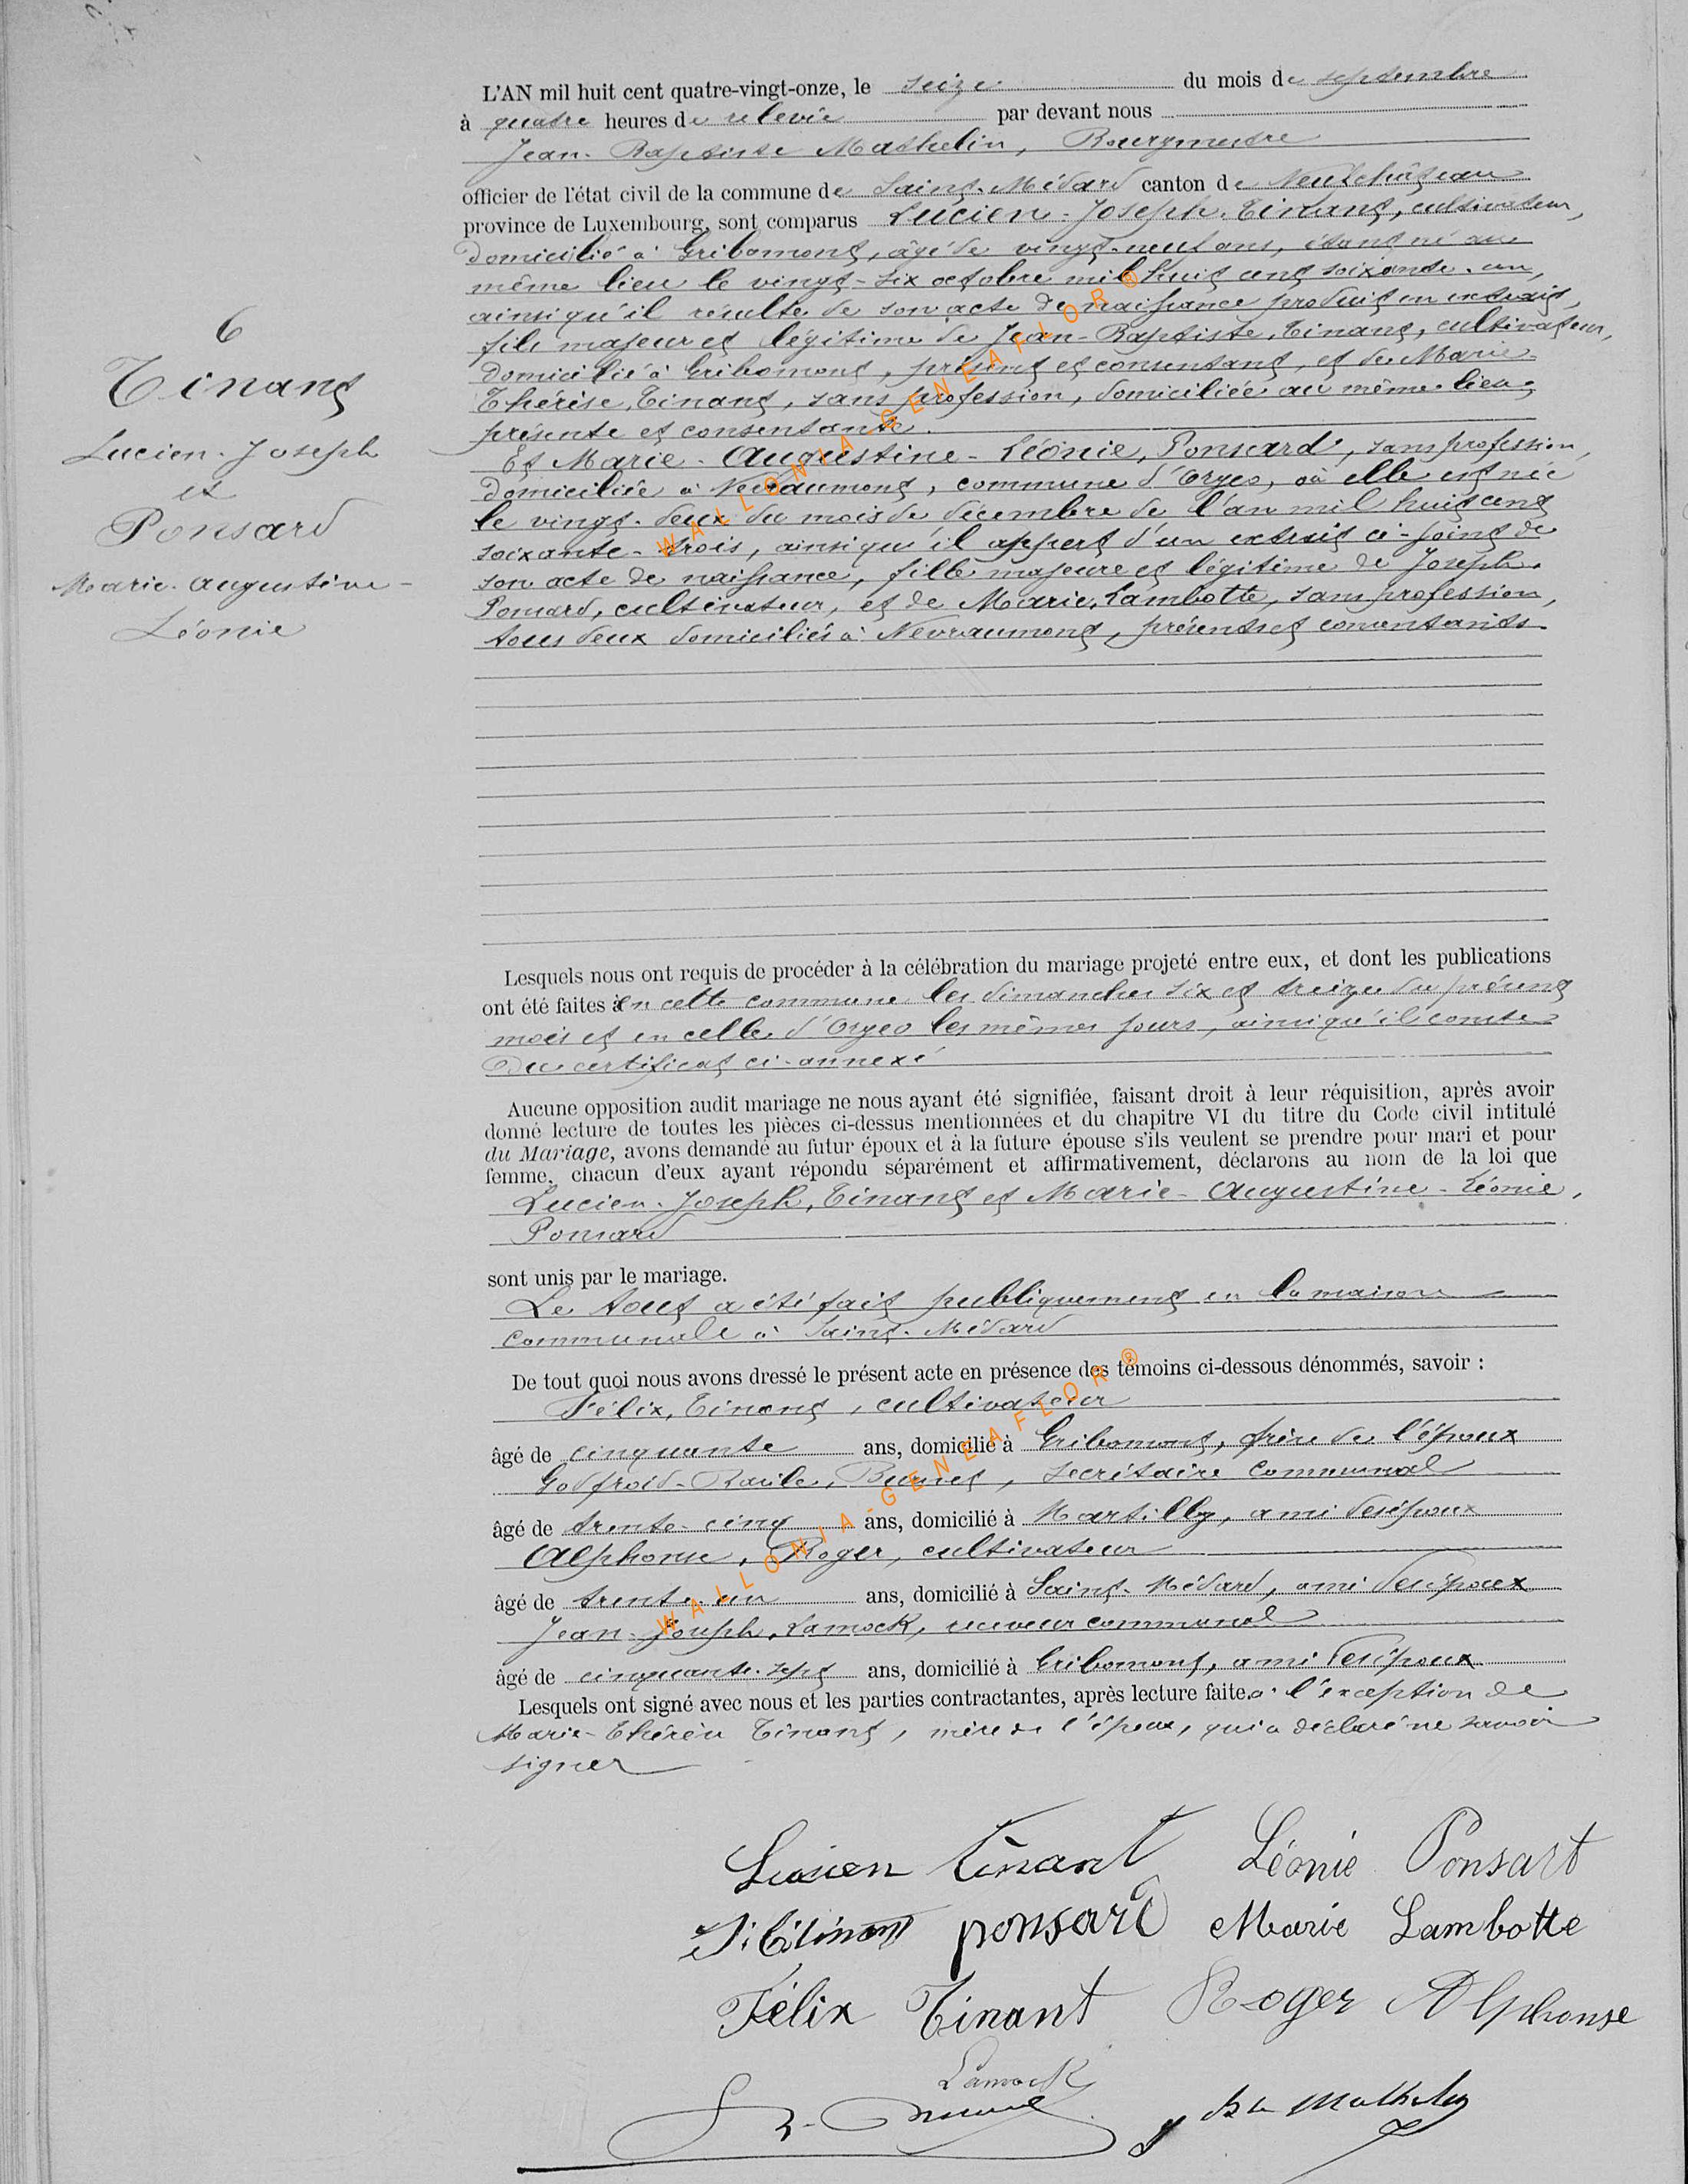 L'AN mil huit cent quatre-vingt-onze, le seize du mois de septembre
à quatre heures de relevée par devant nous
Jean-Baptiste Mathelin, Bourgmestre
officier de l'état civil de la commune de Saint-Médard canton de Neufchâteau
province de Luxembourg, sont comparus Lucien-Joseph, Tinant, cultivateur,
domicilié à Gribomont, âgé de vingt-neuf ans, étant né au
même lieu le vingt-six octobre mil huit cent soixante-un,
ainsi qu'il résulte de son acte de naissance produit en extrait,
fils majeur et légitime de Jean-Baptiste, Tinant, cultivateur,
domicilié à Gribomont, présent et consentant, et de Marie-
Thérèse, Tinant, sans profession, domiciliée au même lieu,
présente et consentante.
Et Marie-Augustine-Léonie, Ponsard, sans profession,
domiciliée à Nevraumont, commune d'Orgeo, où elle est née
le vingt-deux du mois de décembre de l'an mil huit cent
soixante-trois, ainsi qu'il appert d'un extrait ci-joint de
son acte de naissance, fille majeure et légitime de Joseph,
Ponsard, cultivateur, et de Marie, Lambotte, sans profession,
tous deux domiciliés à Nevraumont, présents et consentants.
6
Tinant
Lucien-Joseph
et
Ponsard
Marie-Augustine-
Léonie
Lesquels nous ont requis de procéder à la célébration du mariage projeté entre eux, et dont les publications
ont été faites à en cette commune les dimanches six et treize du présent
mois et en celle d'Orgeo les mêmes jours, ainsi qu'il conste
du certificat ci-annexé
Aucune opposition audit mariage ne nous ayant été signifiée, faisant droit à leur réquisition, après avoir
donné lecture de toutes les pièces ci-dessus mentionnées et du chapitre VI du titre du Code civil intitulé
du Mariage, avons demandé au futur époux et à la future épouse s'ils veulent se prendre pour mari et pour
femme, chacun d'eux ayant répondu séparément et affirmativement, déclarons au nom de la loi que
Lucien-Joseph, Tinant et Marie-Augustine-Léonie,
Ponsard
sont unis par le mariage.
Le tout a été fait publiquement en la maison
communale à Saint-Médard
De tout quoi nous avons dressé le présent acte en présence des témoins ci-dessous dénommés, savoir :
Félix, Tinant, cultivateur
âgé de cinquante ans, domicilié à Gribomont, frère de l'époux
Godfroid- , secrétaire communal
âgé de trente-cinq ans, domicilié à Martilly, ami des époux
Alphonse, Roger, cultivateur
âgé de trente-un ans, domicilié à Saint-Médard, ami des époux
Jean-Joseph, Lamock, receveur communal
âgé de cinquante-sept ans, domicilié à Gribomont, ami des époux
Lesquels ont signé avec nous et les parties contractantes, après lecture faite. à l'exception de
Marie-Thérèse Tinant, mère de l'époux, qui a déclaré ne savoir
signer
Lucien Tinant Léonie Ponsart
Tinant ponsard Marie Lambotte
Félix Tinant Roger Alphonse
Lamock
Mathelin
WALLONIA-GENEAFLOR®
WALLONIA-GENEAFLOR®